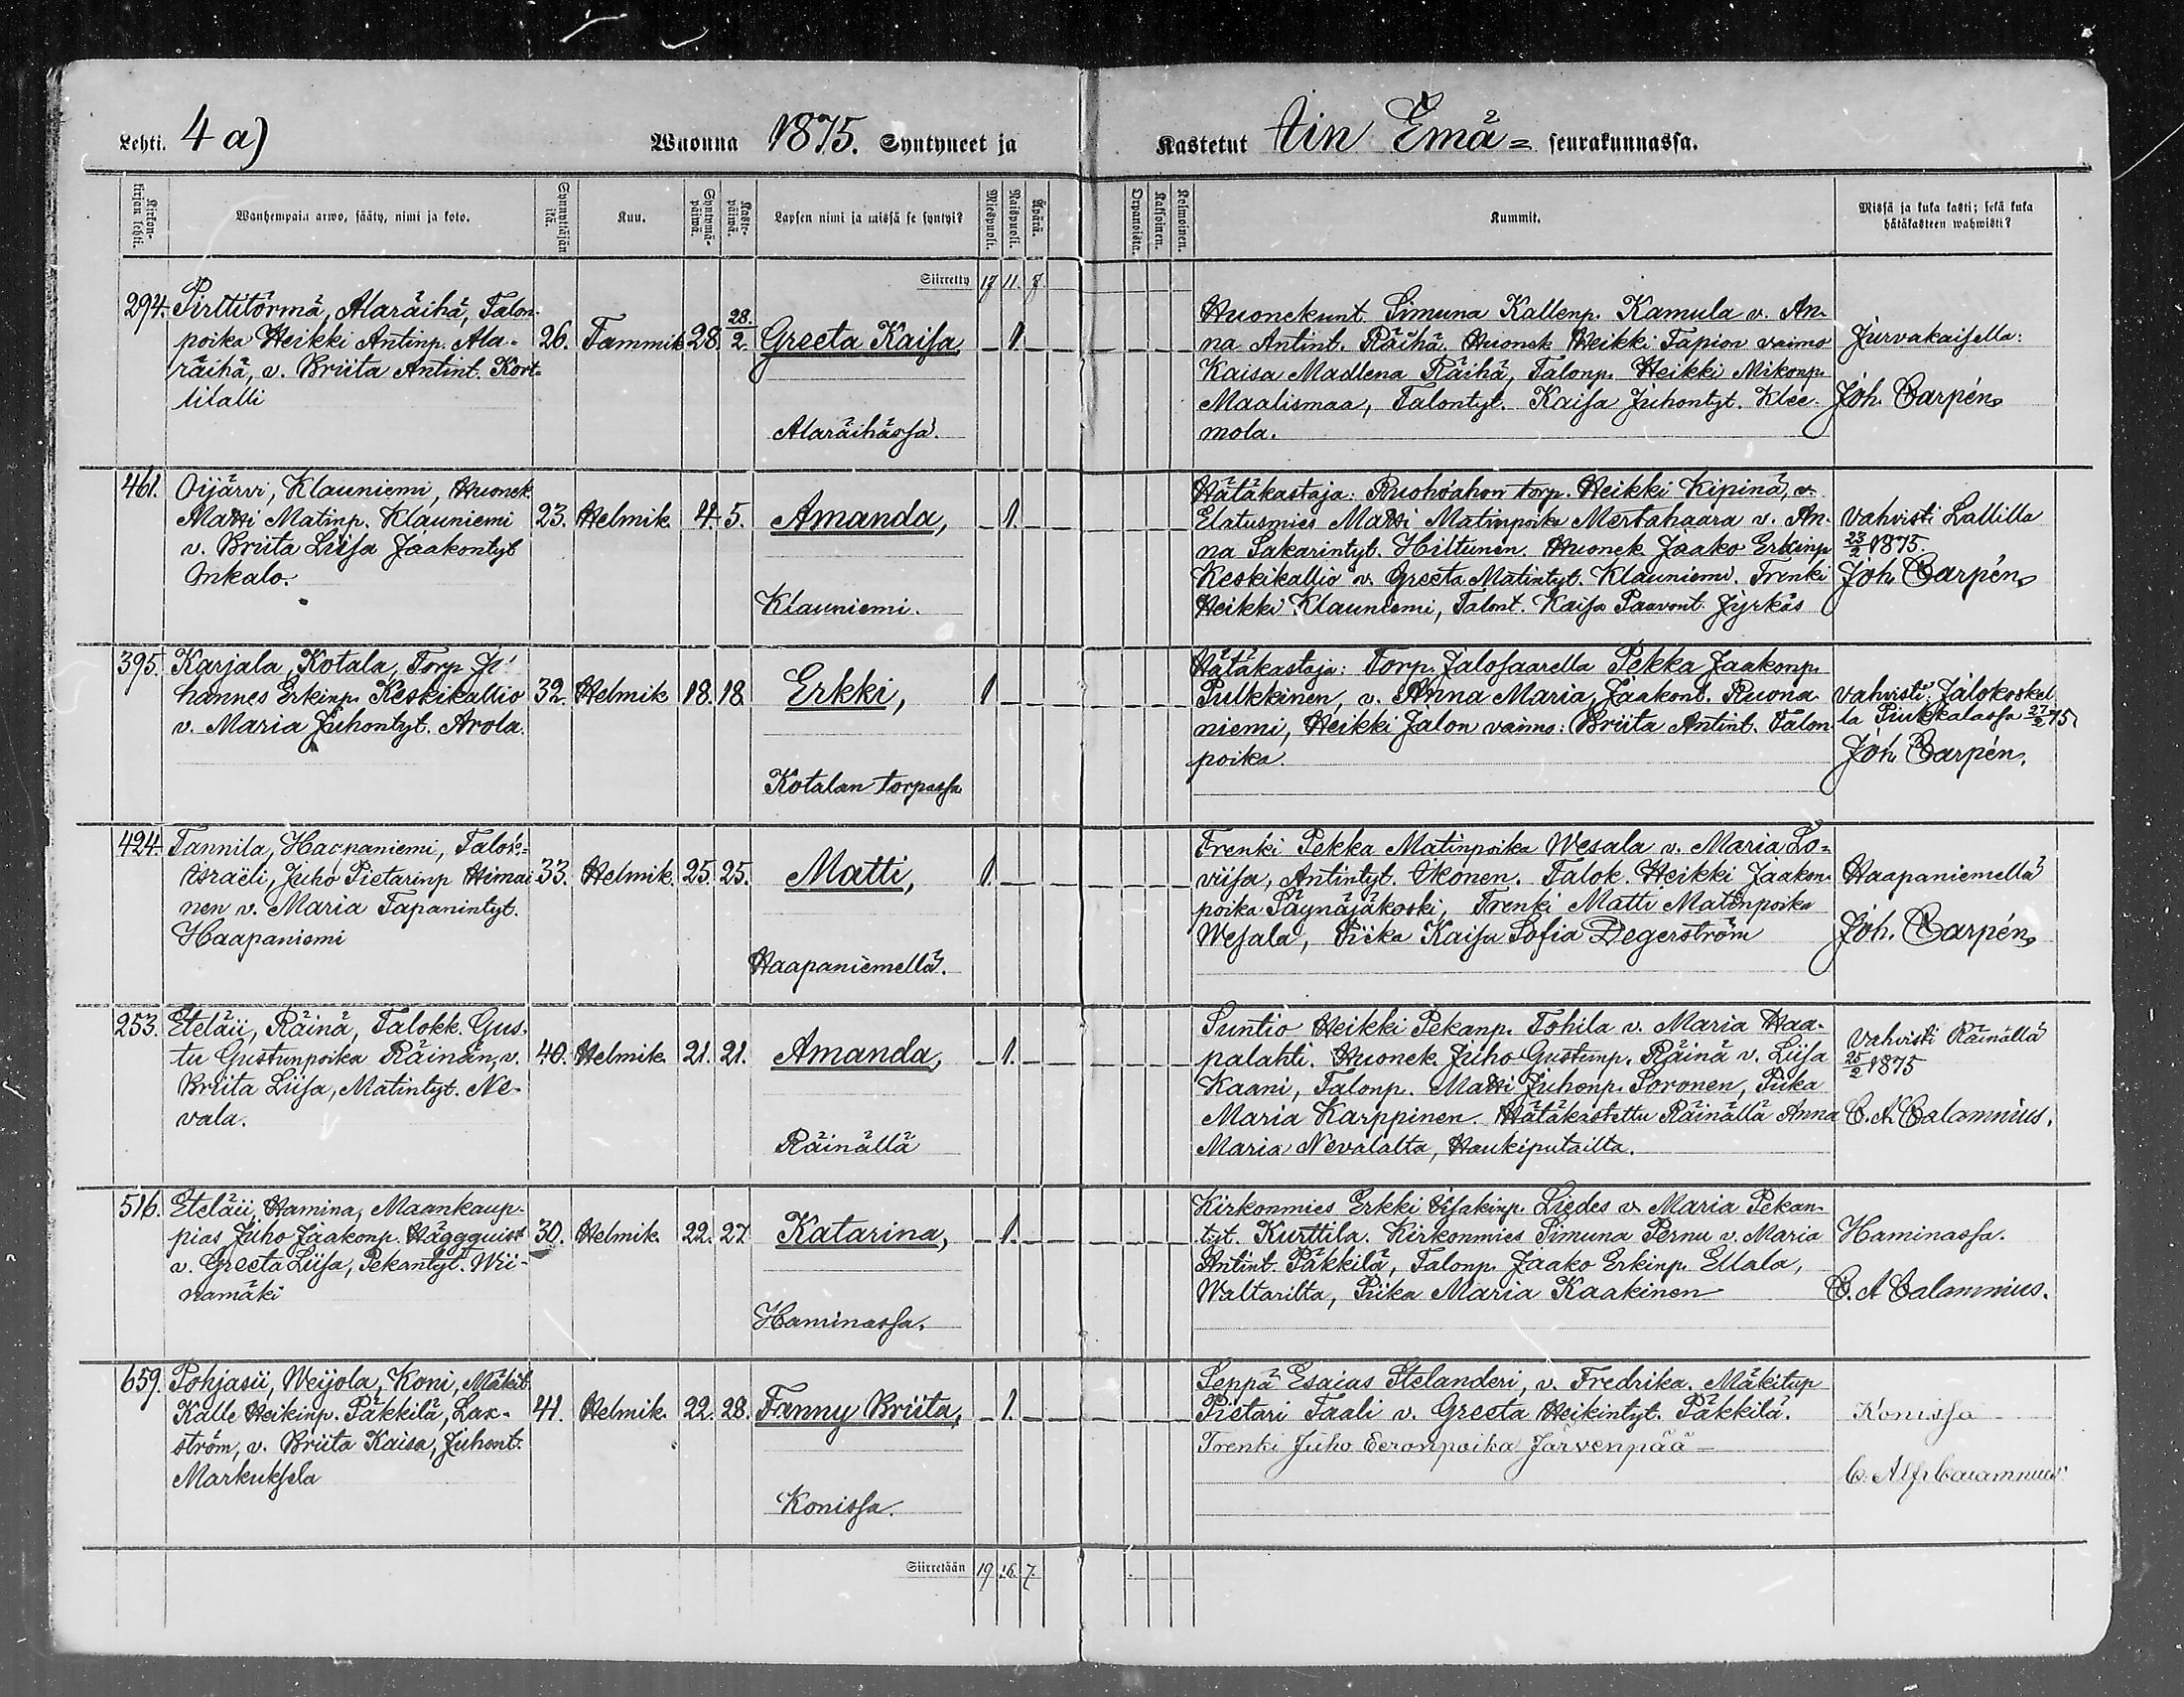 Lehti. 4 a) Wuonna 1875. Syntyneet ja Kastetut Iin Emä= seurakunnassa.
Kirkon-kirjan lehti. Wanhempain arwo, sääty, nimi ja koto. Synnyttäjän ikä. Kuu. Syntymä-päiwä. Kaste-päiwä. Lapsen nimi ja missä se syntyi? Miespuoli. Naispuoli. Äpärä. Orpanoista. Kaksoinen. Kolmoinen. Kummit. Missä ja kuka kasti; sekä kuka hätäkasteen wahwisti?
Siirretty 17 11. 7.
294. Pirttitörmä, Alaräihä, Talon-
poika Heikki Antinp. Ala-
räihä, v. Briita Antint. Kort-
titalli
26. Tammik 28. 28./2. Greeta Kaisa 1
Alaräihässä.
Huonekunt Simuna Kallenp. Kamula v. An-
na Antint. Räihä. Huonek Heikki Tapion vaimo
Kaisa Madlena Räihä, Talonp. Heikki Mikonp.
Maalismaa, Talontyt. Kaisa Juhontyt. Klee-
mola.
Jurvakaisella:
Joh. Carpén
461. Oijärvi, Klauniemi, Huonek
Matti Matinp. Klauniemi
v. Briita Liisa Jaakontyt
Onkalo.
23. Helmik. 4. 5. Amanda, 1.
Klauniemi.
Hätäkastaja: Ruohoahon torp. Heikki Kipinä, v.
Elatusmies Matti Matinpoika Mertahaara v. An-
na Sakarintyt. Hiltunen. Huonek. Jaako Erkinp
Keskikallio v. Greeta Matintyt. Klauniemi. Trenki
Heikki Klauniemi, Talont. Kaisa Paavont. Jyrkäs
Vahvisti Lallilla
23/2 1875.
Joh Carpén
395. Karjala, Kotala, Torp Jo-
hannes Erkinp. Keskikallio
v. Maria Juhontyt. Arola.
32. Helmik 18. 18. Erkki, 1
Kotalan torpassa
Hätäkastaja: Torp. Jalosaarella Pekka Jaakonp.
Pulkkinen, v. Anna Maria, Jaakont. Ruona
niemi, Heikki Jalon vaimo: Briita Antint. Talon-
poika.
Vahvisti: Jalokoskel
la Piukkalassa 27/2 75
Joh Carpén.
424. Tannila, Haapaniemi, Talok:=
Israëli, Juho Pietarinp Himai
nen v. Maria Tapanintyt.
Haapaniemi
33. Helmik. 25. 25. Matti, 1.
Haapaniemellä.
Trenki Pekka Matinpoika Wesala v. Maria Lo=
viisa, Antintyt. Ikonen. Talok. Heikki Jaakon-
poika Säynäjäkoski, Trenki Matti Matinpoika
Wesala, Piika Kaisa Sofia Degerström
Haapaniemellä
Joh. Carpén
253. Eteläii, Räinä, Talokk. Gus-
tu Gustunpoika Räinän, v.
Briita Liisa, Matintyt. Ne-
vala.
40. Helmik. 21. 21. Amanda, 1.
Räinällä
Suntio Heikki Pekanp. Tohila v. Maria Haa-
palahti. Huonek. Juho Gustunp. Räinä v. Liisa
Kaani, Talonp. Matti Juhonp. Soronen, Piika
Maria Karppinen. Hätäkastettu Räinällä Anna
Maria Nevalalta, Haukiputailta.
Vahvisti Räinällä
25/2 1875
C. A Calamnius.
516. Eteläii, Hamina, Maankaup-
pias Juho Jaakonp. Häggquist
v. Greeta Liisa, Pekantyt. Wii-
namäki
30. Helmik. 22. 27 Katarina, 1.
Haminassa.
Kirkonmies Erkki Iisakinp. Liedes v. Maria Pekan-
tyt. Kurttila. Kirkonmies Simuna Pernu v. Maria
Antint. Päkkilä, Talonp. Jaako Erkinp. Ellala,
Waltarilta, Piika Maria Kaakinen
Haminassa.
C. A Calamnius.
659. Pohjasii, Weijola, Koni, Mäkit
Kalle Heikinp. Päkkilä, Lax-
ström, v. Briita Kaisa, Juhont.
Markuksela
41. Helmik. 22. 28. Fanny Briita, 1.
Konissa.
Seppä Esaias Stelanderi, v. Fredrika. Mäkitup
Pietari Taali v. Greeta Heikintyt. Päkkilä.
Trenki Juho Eeronpoika Järvenpää
Konissa
C. Alfr Calamnius.
Siirretään 19 16. 7.